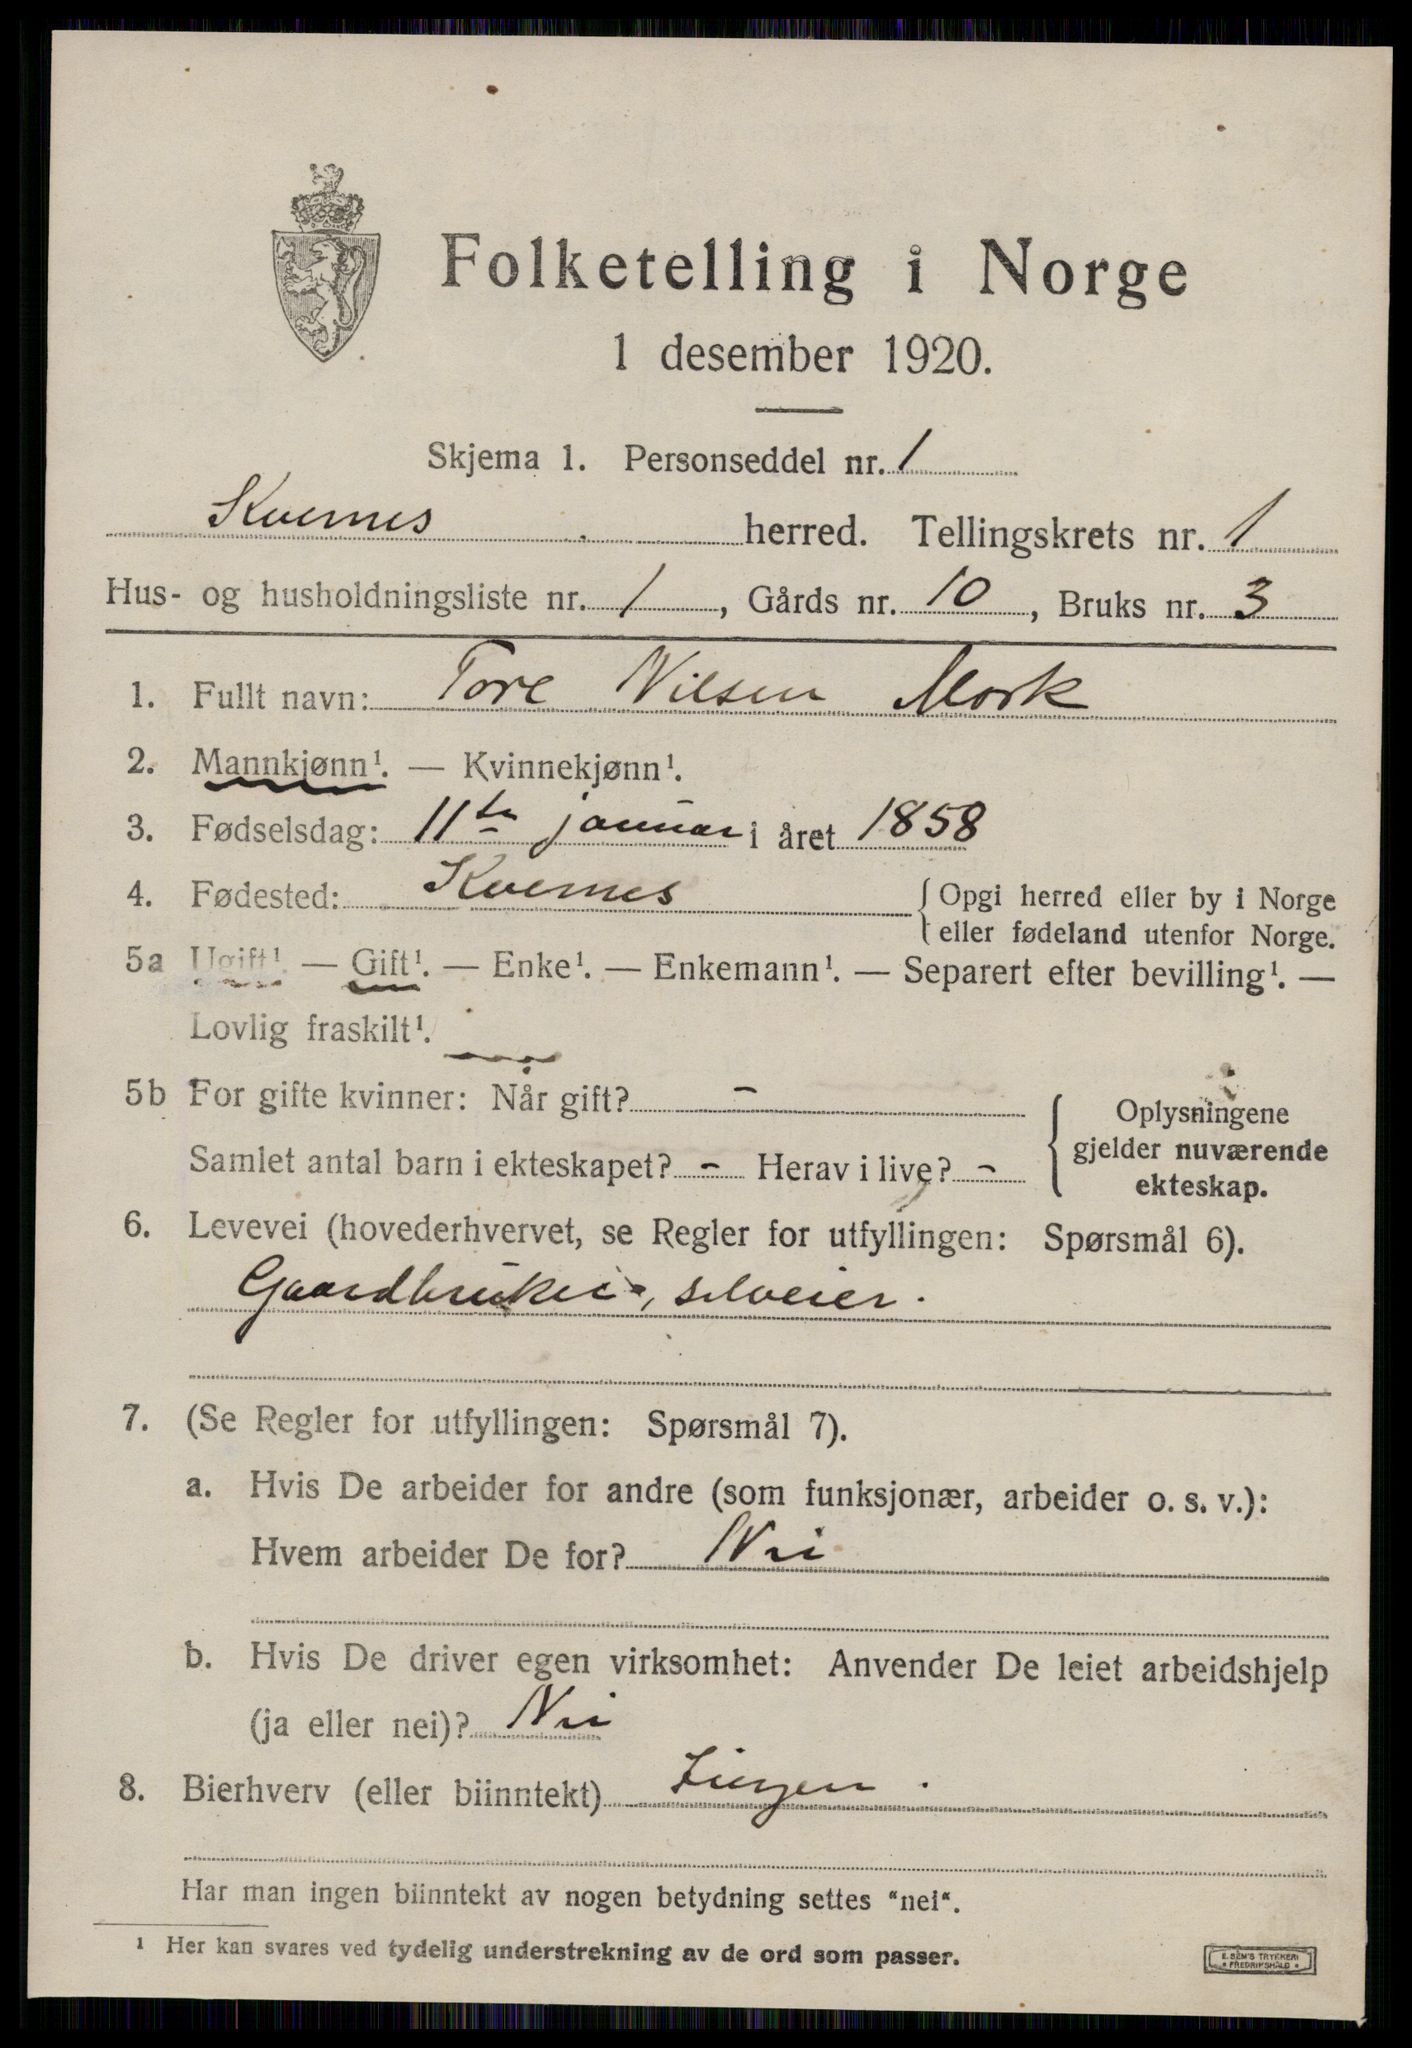 Folketelling i Norge
1 desember 1920.
Skjema 1. Personseddel nr. 1
Kvernes herred. Tellingskrets nr. 1
Hus- og husholdningsliste nr. 1, Gårds nr. 10, Bruks nr. 3
1. Fullt navn: Tore Nilsen Mork
2. Mannkjønn¹. — Kvinnekjønn¹.
3. Fødselsdag: 11te januar i året 1858
4. Fødested: Kvernes { Opgi herred eller by i Norge
eller fødeland utenfor Norge.
5a Ugift¹. — Gift¹. — Enke¹. — Enkemann¹. — Separert efter bevilling¹. —
Lovlig fraskilt¹.
5b For gifte kvinner: Når gift? - { Oplysningene
Samlet antal barn i ekteskapet? - Herav i live? - gjelder nuværende
ekteskap.
6. Levevei (hovederhvervet, se Regler for utfyllingen: Spørsmål 6).
Gaardbruker, selveier.
7. (Se Regler for utfyllingen: Spørsmål 7).
a. Hvis De arbeider for andre (som funksjonær, arbeider o. s. v.):
Hvem arbeider De for? Nei
b. Hvis De driver egen virksomhet: Anvender De leiet arbeidshjelp
(ja eller nei)? Nei
8. Bierhverv (eller biinntekt) Ingen.
Har man ingen biinntekt av nogen betydning settes "nei".
¹ Her kan svares ved tydelig understrekning av de ord som passer.
E. SEM'S TRYKKERI
• FREDRIKSHALD •